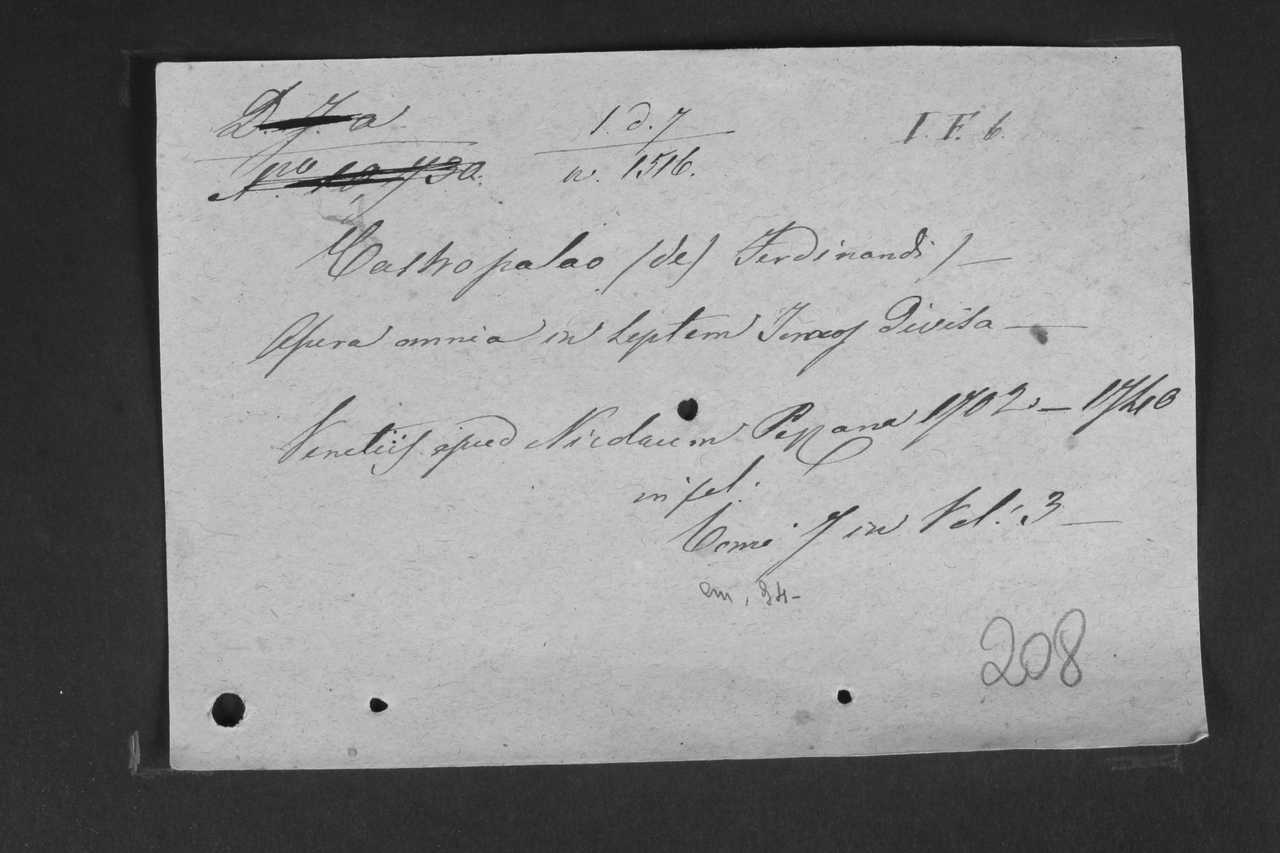 D. J. a
1. d. 7
I. F. 6.
N.ro 10,730.
n. 1516.
Castropalao (de) Ferdinandi) —
Opera omnia in septem Tomos Divisa —
Venetiis apud Nicolaum Pezzana 1702 — 1740
in fol.
Tomi 7 in Vol: 3 —
cm, 34-
208